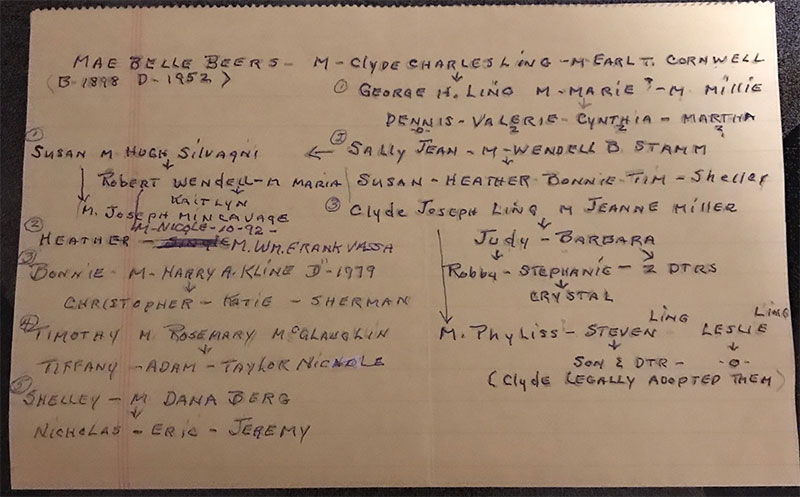 MAE BELLE BEERS - M - CLYDE CHARLES LING - M EARL T. CORNWELL
(B-1898 D-1952)
① GEORGE H. LING M-MARIE ? - M MILLIE
DENNIS - VALERIE - CYNTHIA - MARTHA
-0- 2 2 2
① SUSAN M HUGH SILVAGNI
ROBERT WENDELL - M MARIA
KAITLYN
M. JOSEPH MINCAVAGE
M-NICOLE-10-92-
② HEATHER - SINGLE M. WM. FRANK VASSA
③ BONNIE - M - HARRY A. KLINE D-1979
CHRISTOPHER - KATIE - SHERMAN
④ TIMOTHY M. ROSEMARY McGLAUGLIN
TIFFANY - ADAM - TAYLOR NICHOLE
⑤ SHELLEY - M DANA BERG
NICHOLAS - ERIC - JEREMY
② SALLY JEAN - M - WENDELL B. STAMM
SUSAN - HEATHER BONNIE - TIM - Shelley
③ CLYDE JOSEPH LING M JEANNE MILLER
JUDY - BARBARA
ROBBY - STEPHANIE - 2 DTRS
CRYSTAL
M. PHYLISS - STEVEN LING LESLIE LING
SON & DTR - -0-
(CLYDE LEGALLY ADOPTED THEM)